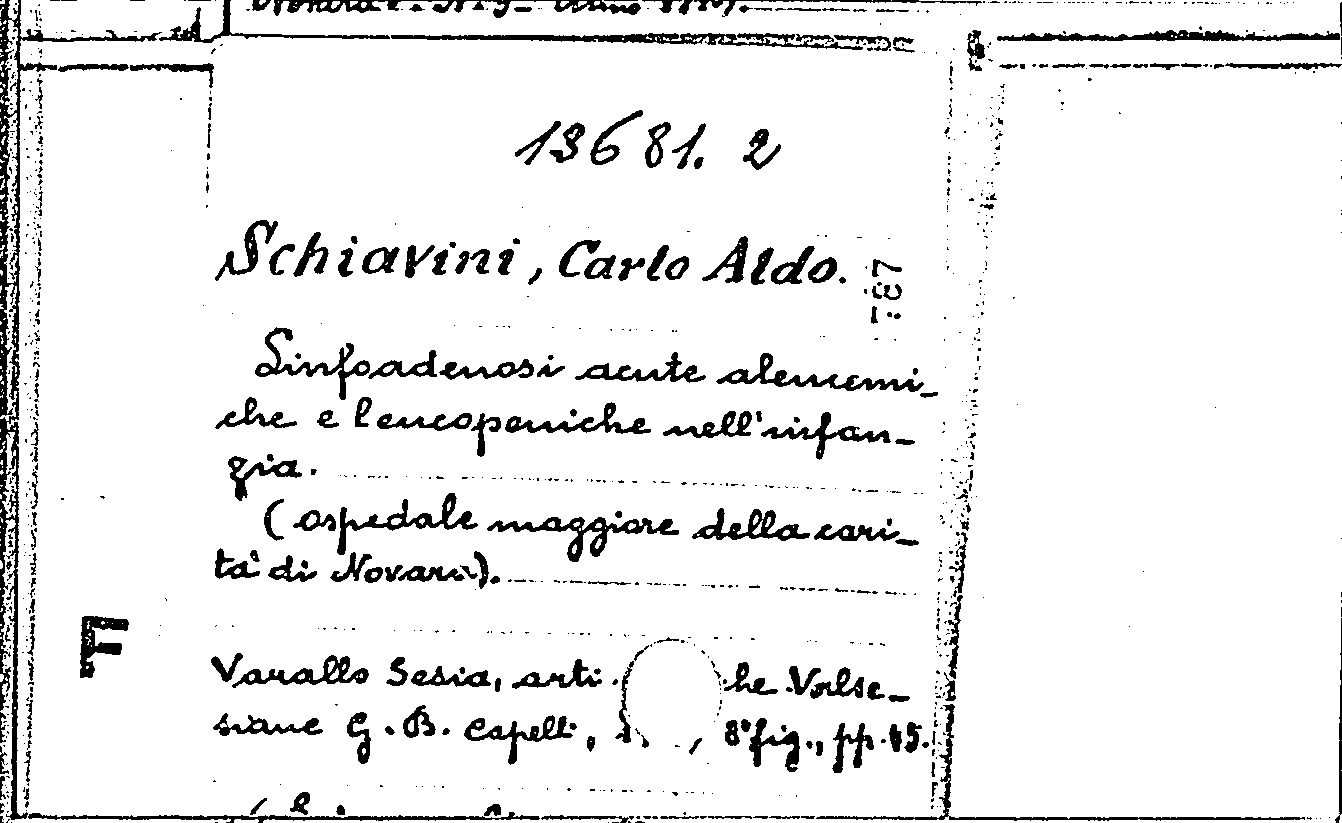 13681. 2
Schiavini, Carlo Aldo.
787
Linfoadenosi acute aleucemi-
che e leucopeniche nell'infan-
zia.
(ospedale maggiore della cari-
tà di Novara).
F
Varallo Sesia, arti he Valse-
siane G. B. Capelli, 8° fig., pp. 45.